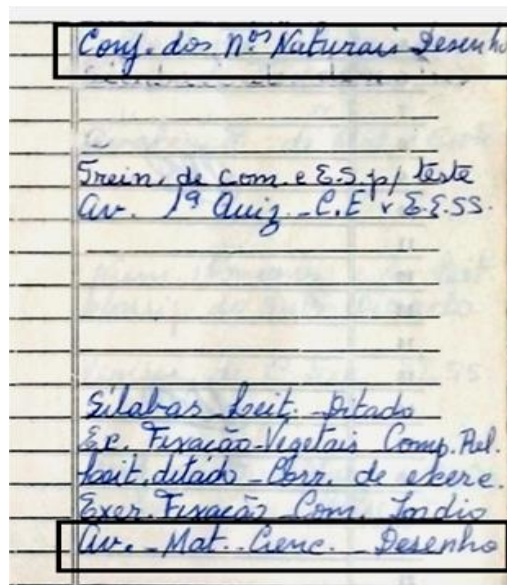 Conj. dos nos Naturais Desenho
Trein. de com. e E.S. p/ teste
av. 1ª Quiz - C.E v E.E.SS.
Sílabas - Leit. - Ditado
Ex. Fixação - Vegetais Comp. Rel.
Leit. ditado - Corr. de exerc.
Exer. Fixação - Com.
Av. - Mat. - Cienc. - Desenho